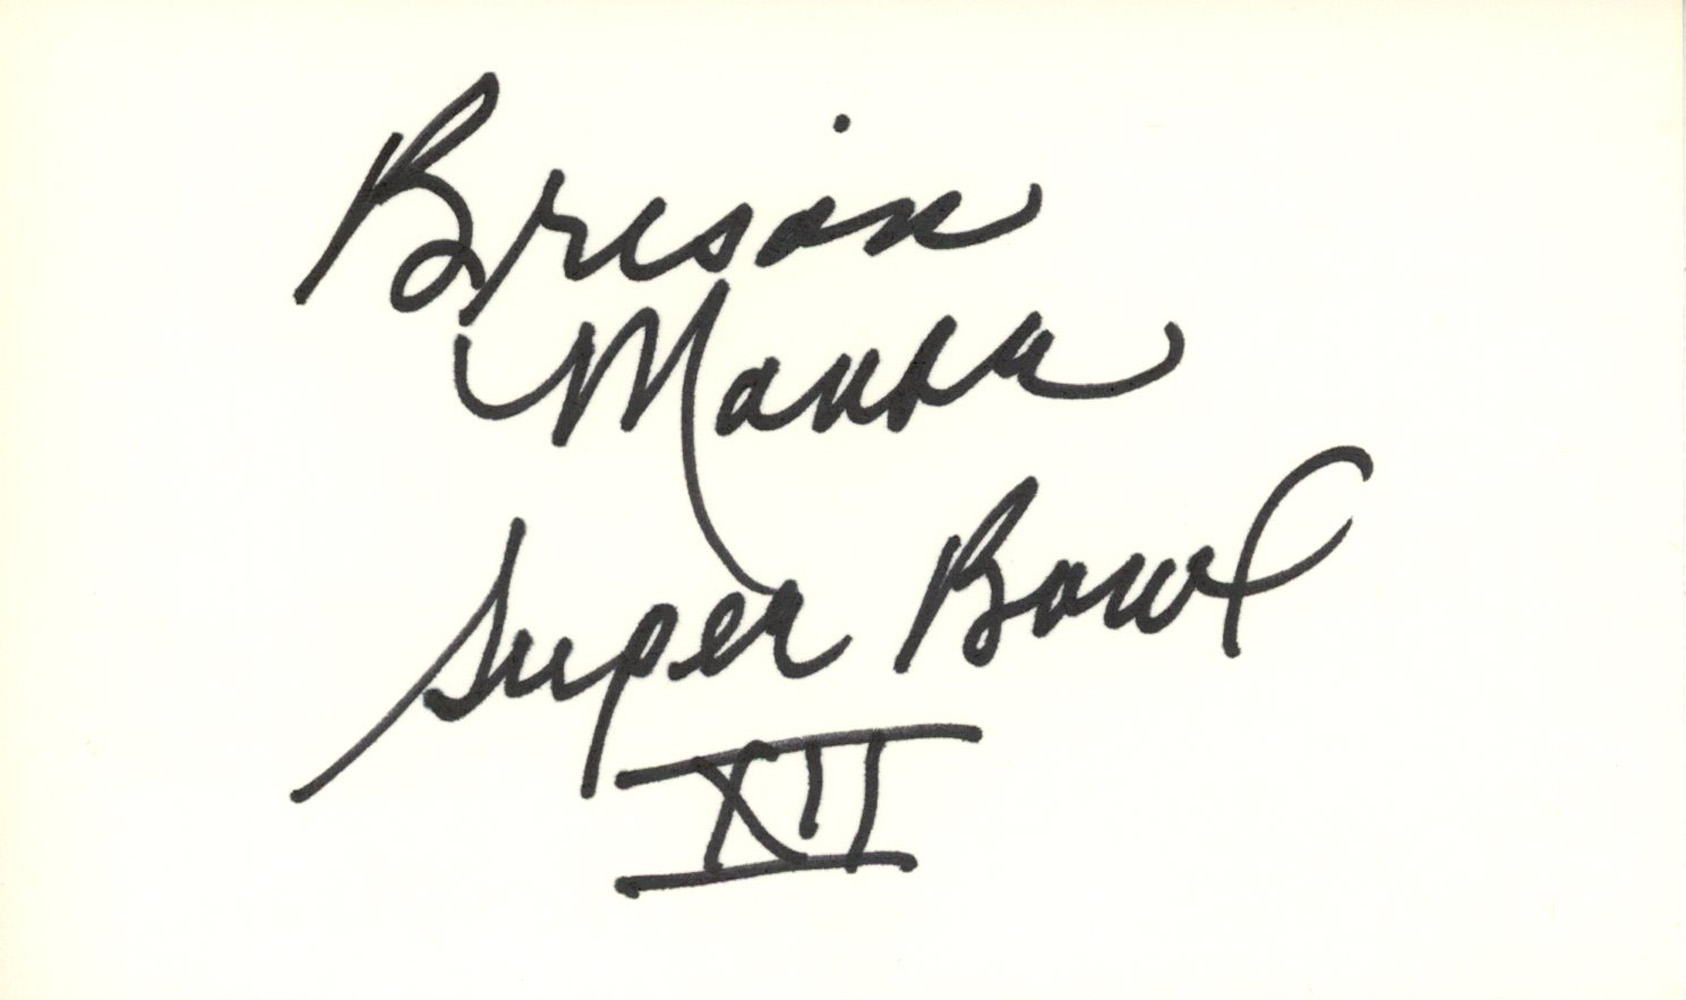 Brison
Manor
Super Bowl
XII